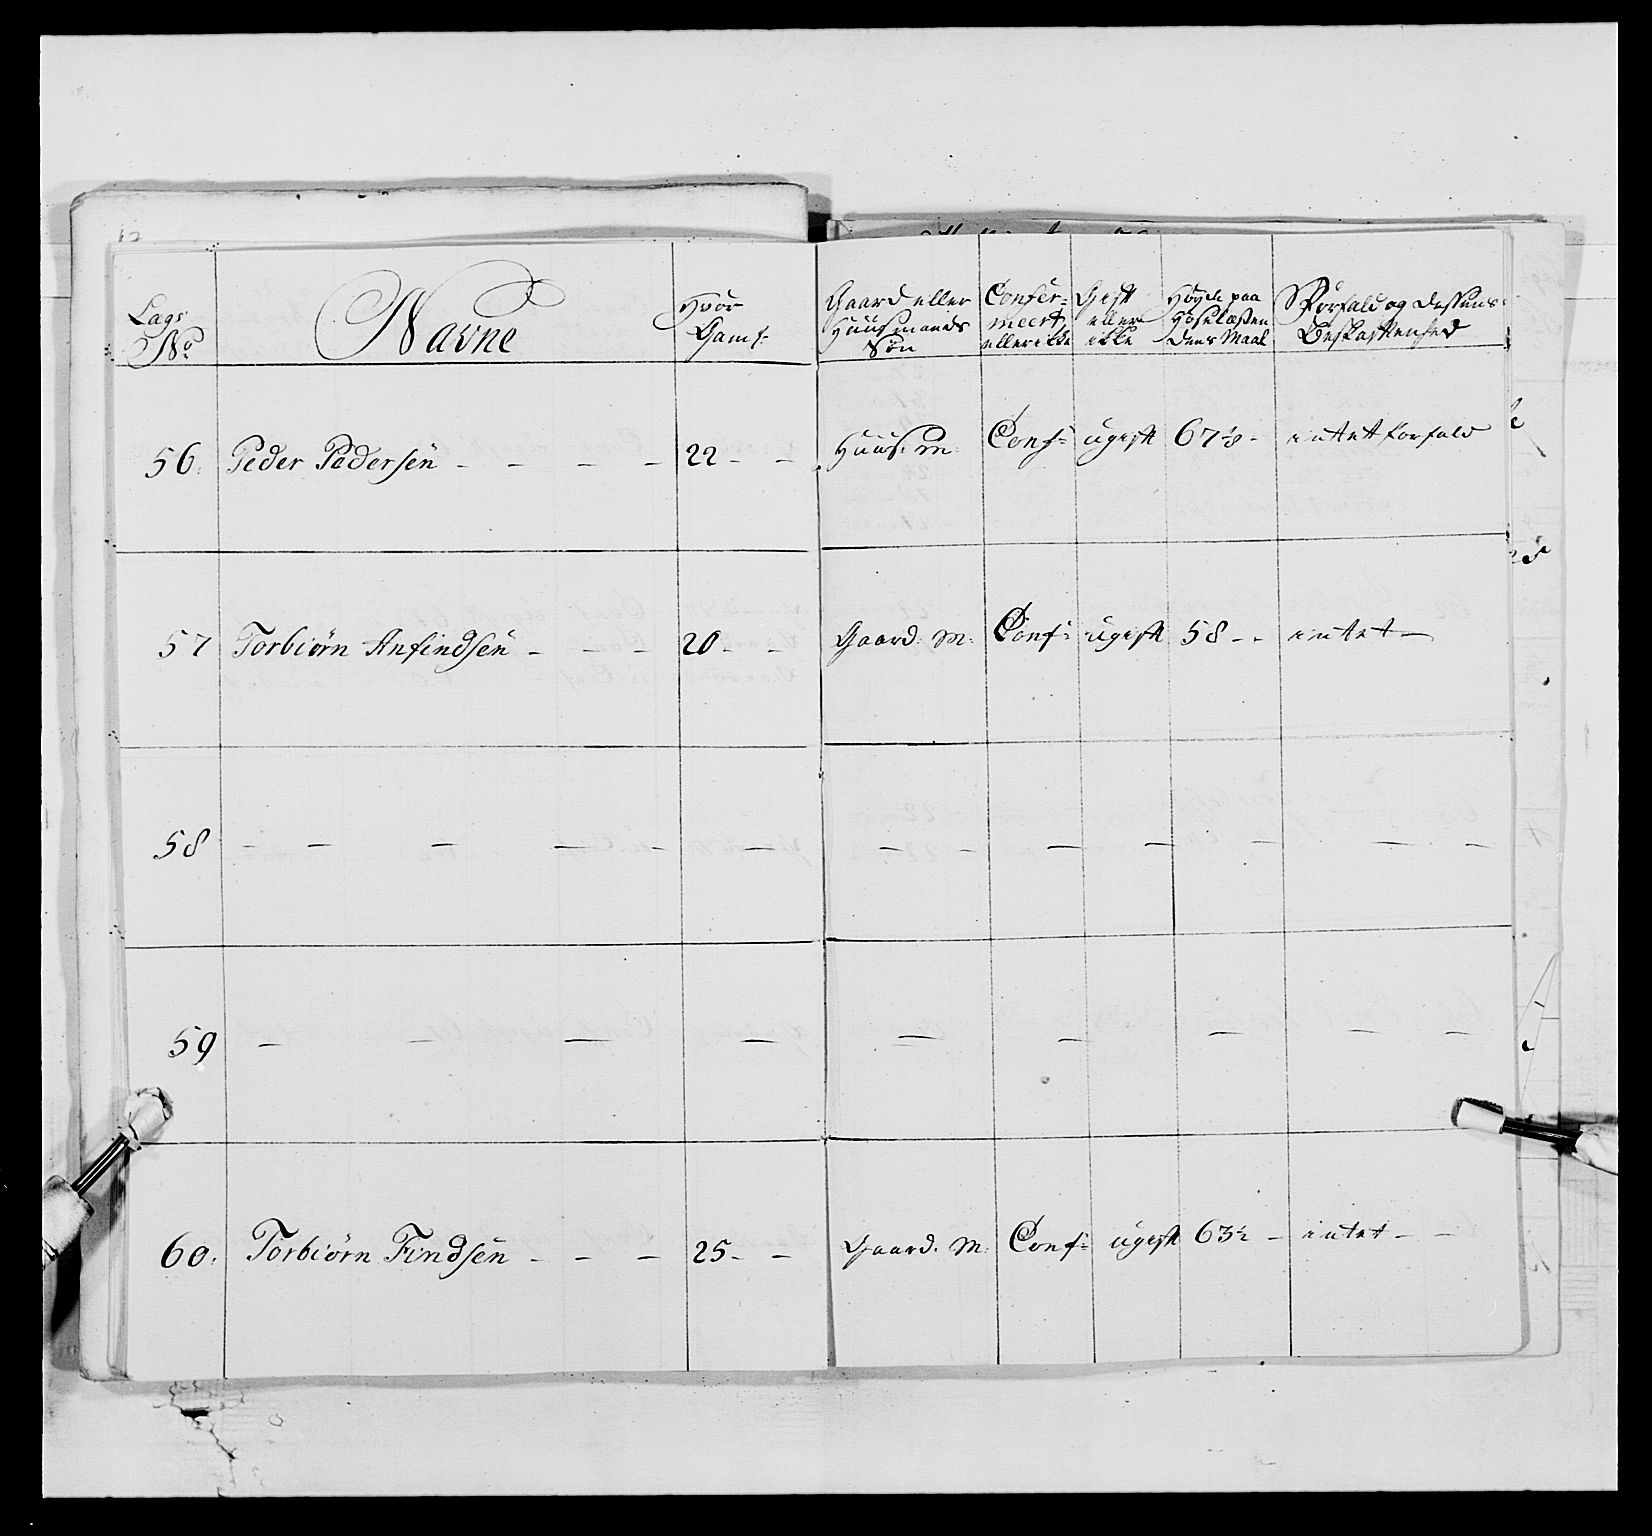 Lags No Navne Hvor Gaml: Gaard eller Huusmands Søn Confer= meert eller ikke Gift eller ikke Høyde paa Hoselæsten Deres Maal Forfald og dessens Beskaffenhed
56. Peder Pedersen - - - - 22 - - Huus: M: Conf: ugift 67 1/8 - intet forfald
57 Torbiørn Anfindsen - - - 20 - - Gaard: M: Conf: ugift 58 - - intet -
58 - - - - - - - - - - - - -
59 - - - - - - - - -
60. Torbiørn Findsen - - - 25 - - Gaard: M: Conf: ugift 63 1/2 - intet - -